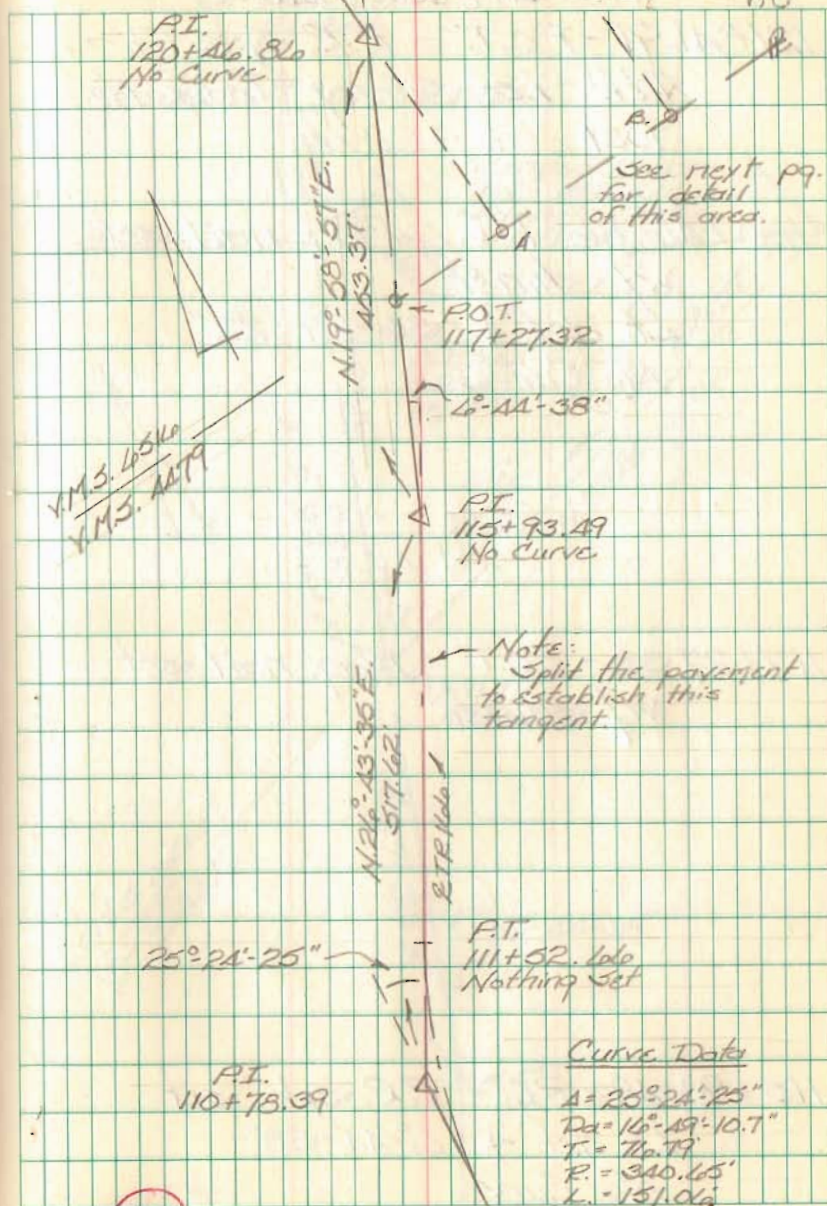 P.I.
120+46.86
No Curve
B.
See next pg.
for detail
of this area.
A
N.19°-58'-57"E.
453.37'
P.O.T.
117+27.32
6°-44'-38"
V.M.S. 6516
V.M.S. 4479
P.I.
115+93.49
No Curve
Note:
Split the pavement
to establish this
tangent.
N.26°-43'-35"E.
517.62'
℄ T.R. 166
25°-24'-25"
P.T.
111+52.66
Nothing Set
P.I.
110+78.39
Curve Data
Δ = 25°-24'-25"
Da = 16°-49'-10.7"
T = 76.79'
R. = 340.65'
L. = 151.06'